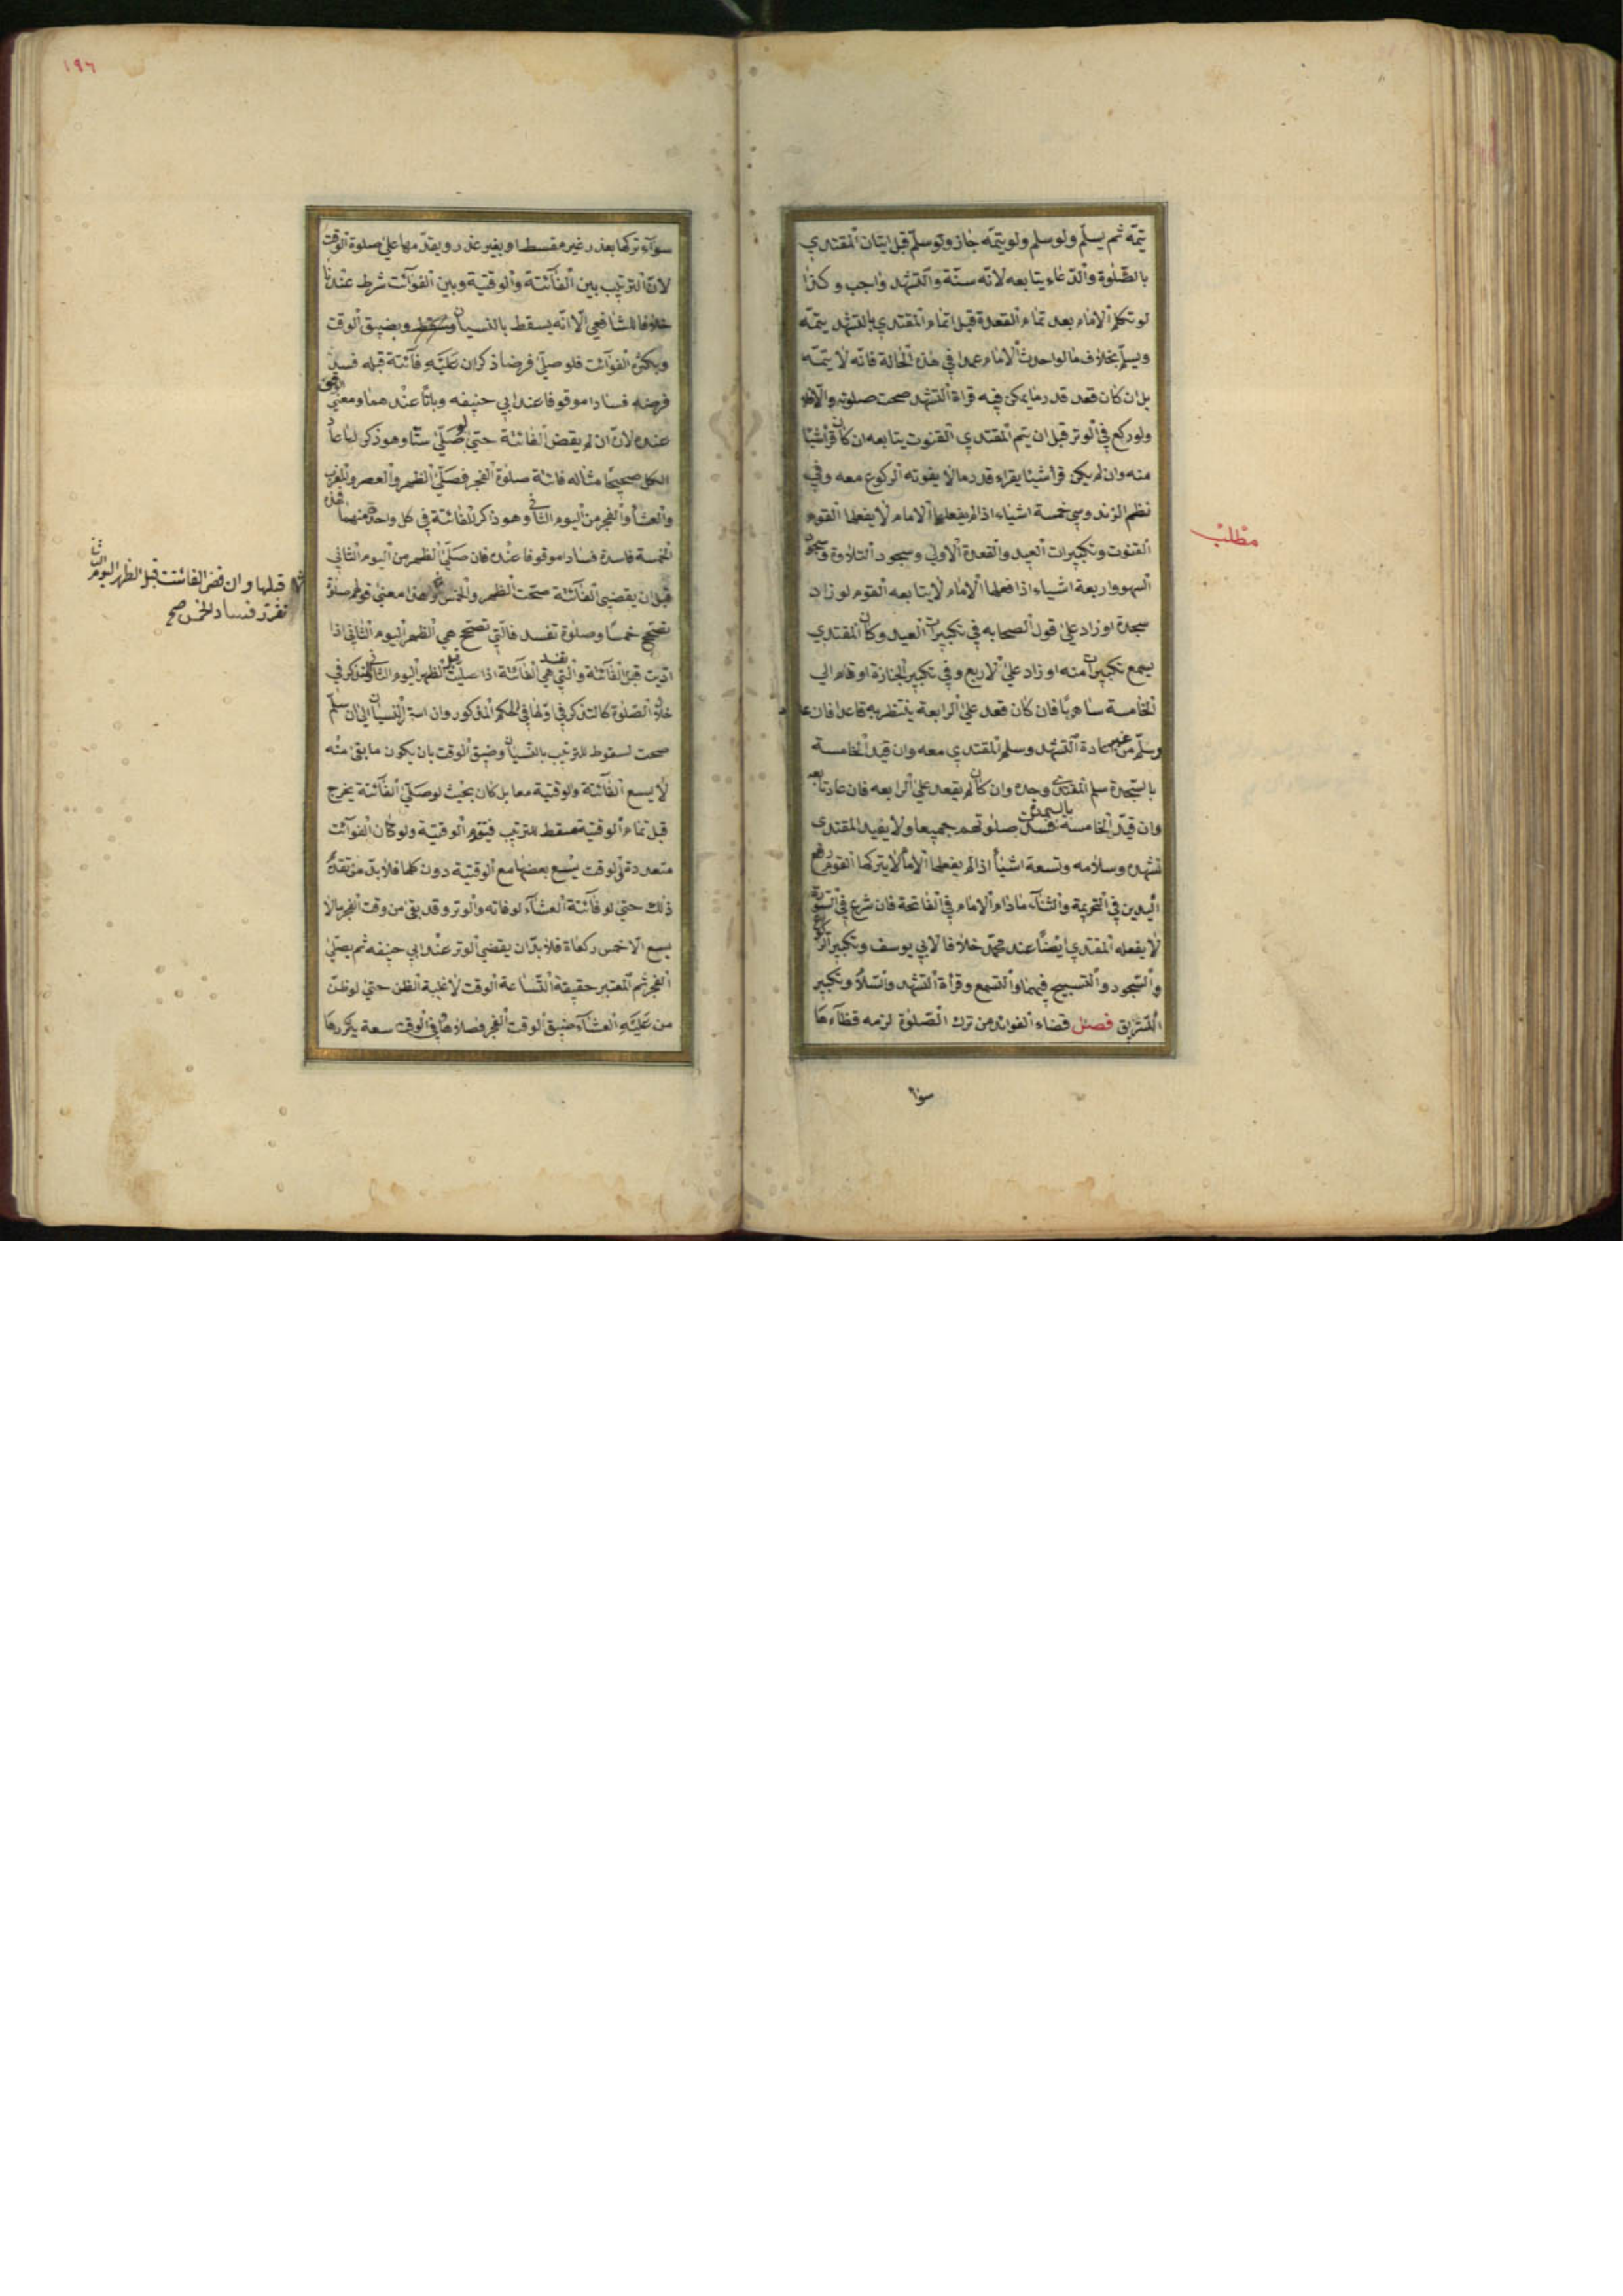 يتمّه ثم يسلّم ولو سلم ولو يتمّه جاز ولو سلّم قبل اتيان المقتدي
بالصّلوة والدّعاء يتابعه لانّه سنّة والتّشهد واجب وكذا
لو تكلم الامام بعد تمام القعدة قبل اتمام المقتدي بالتشهد يتمّه
ويسلّم بخلاف ما لو احدث الامام عمدا في هذه الحالة فانّه لا يتمّه
بل ان كان قعد قدر ما يمكن فيه قراة التشهد صحت صلوته والا فلا
ولو ركع في الوتر قبل ان يتم المقتدي القنوت يتابعه ان كان قرأ شيئا
منه وان لم يكن قرأ شيئا يقراء قدر ما لا يفوته الركوع معه وفي
نظم الزندوسي خمسة اشياء اذا لم يفعلها الامام لا يفعلها القوم
القنوت وتكبيرات العيد والقعدة الاولي وسجود التلاوة وسجود
السهو واربعة اشياء اذا فعلها الامام لا يتابعه القوم لو زاد
سجدة او زاد علي قول الصحابه في تكبيرات العيد وكان المقتدي
يسمع تكبيرات منه او زاد علي الاربع وفي تكبير الجنازة او قام الي
الخامسة ساهيا فان كان قعد علي الرابعة ينتظر به قاعدا فان عاد
وسلّم من غير اعادة التشهد وسلم المقتدي معه وان قيد الخامسة
بالسّجدة سلم المقتدي وحده وان كان لم يقعد علي الرابعه فان عاد تابعه
وان قيّد الخامسة بالسجدة فسدت صلوتهم جميعا ولا يفيد المقتدي
تشهده وسلامه وتسعة اشيأ اذا لم يفعلها الامام لا يتركها القوم رفع
اليدين في التحريمة والثنآء مادام الامام في الفاتحة فان شرع في السورة
لا يفعله المقتدي ايضا عند محمّد خلافا لابي يوسف وتكبير الركوع
والسّجود والتسبيح فيهما والتسمع وقرأة التشهد والسّلام وتكبير
التشريق فصل قضاء الفوائد من ترك الصّلوة لزمه قظآءها
سوآ
مطلب
١٩٦
سوآء تركها بعذر غير مقسط او بغير عذر ويقدّمها علي صلوة الوقت
لانّ الترتيب بين الفآئتة والوقتية وبين الفوآئت شرط عندنا
خلافا للشافعي الّا انّه يسقط بالنسيان وبضيق الوقت
وبكثرة الفوآئت فلو صلّي فرضا ذكر ان عَلَيْهِ فآئتة قبله فسد
فرضه فسادا موقوفا عند ابي حنيفه وباتًّا عندهما ومعني
عنده لانّ ان لم يقض الفائتة حتي لو صَلّي ستّا وهو ذكر لها عاد
الكل صحيحا مثاله فاتة صلوة الفجر فصلّي الظهر والعصر والمغرب
والعشأ والفجر من اليوم الثاني وهو ذاكر للفائتة في كل واحدة منهما فهذه
الخمسة فاسدة فسادا موقوفا عنده فان صَلّي الظهر من اليوم الثاني
قبل ان يقضي الفآئتة صحّت الظهر والخمس وهذا معني قولهم صلوة
تصحّح خمسًا وصلوة تفسد فالّتي تصحّح هي الظهر اليوم الثاني اذا
ادّيت قبل الفآئتة والّتي تفسد هي الفآئتة اذا صليت قبل الظهر اليوم الثاني والتذكر في
خلال الصّلوة كالتذكر في اوّلها في الحكم المذكور وان استمر النسيان الي ان سلّم
صحت لسقوط الترتيب بالنّسيان وضيق الوقت بان يكون ما بقي منه
لا يسع الفآئتة والوقتية معا بل كان بحيث لو صَلّي الفآئتة يخرج
قبل تمام الوقتية فسقط الترتيب فيقدم الوقتية ولو كان الفوآئت
متعددة والوقت يسع بعضها مع الوقتية دون كلها فلا بدّ من تقديم
ذلك حتي لو فآئتة العشآء لو فاته والوتر وقد بقي من وقت الفجر ما لا
يسع الّا خمس ركعاة فلا بدّ ان يقضي الوتر عند ابي حنيفه ثم يصلّي
الفجر ثم المعتبر حقيقة السّاعة الوقت لا غلبة الظن حتي لو ظنّ
من عَلَيْهِ العشآء ضيق الوقت الفجر فصلاها وفي الوقت سعة يكررها
قبلها وان قضى الفائتت قبل الظهر اليوم الثاني
تقرر فساد الخمس صح